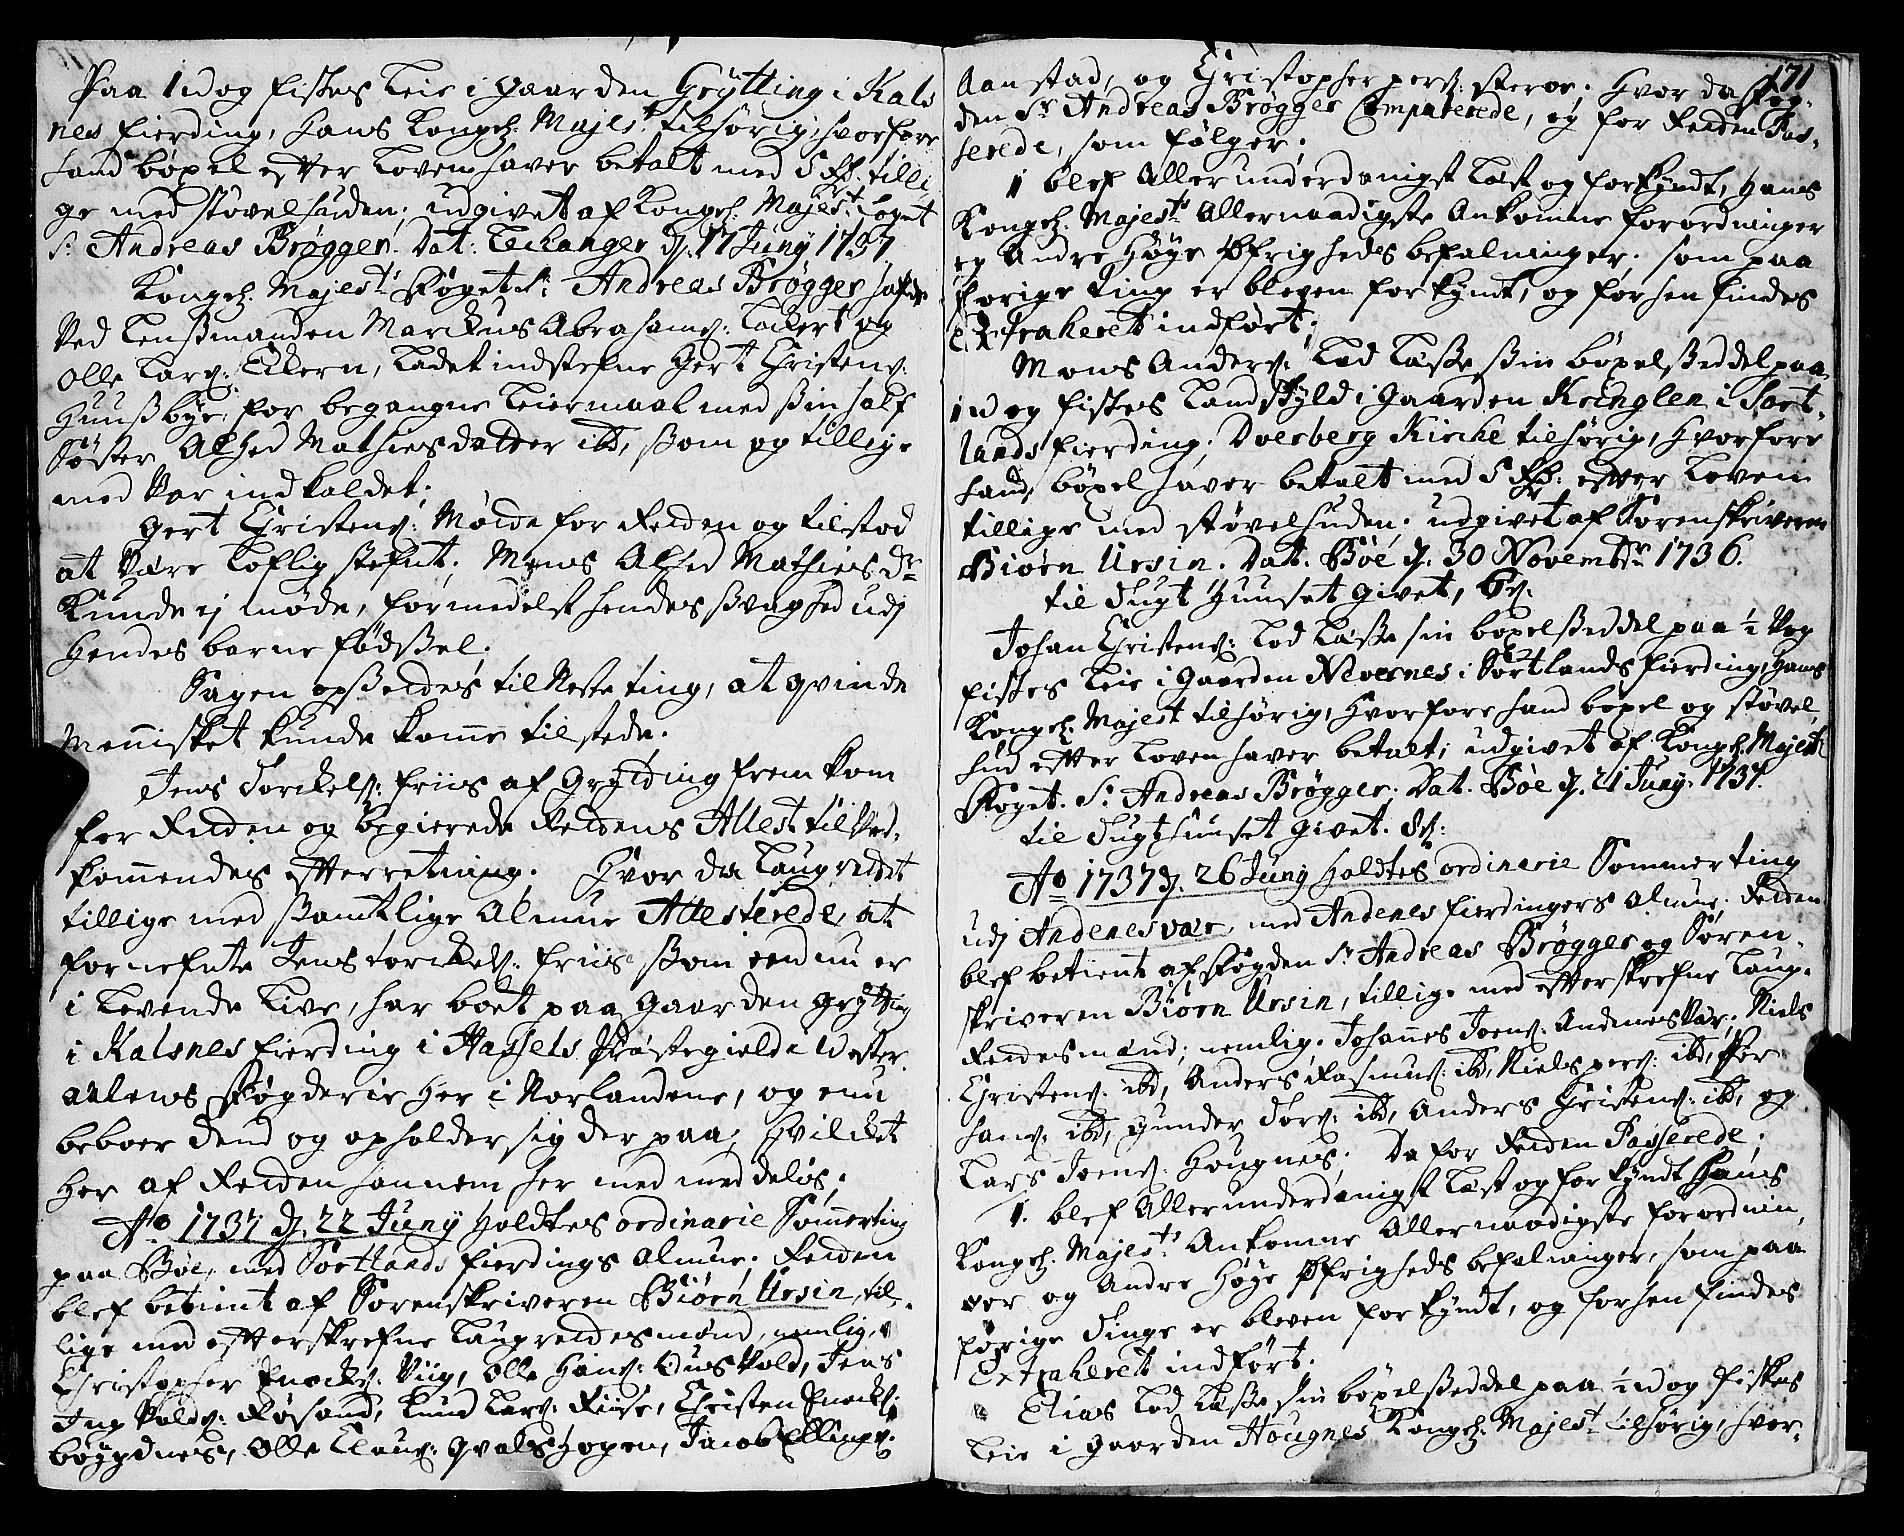 Paa 1 Wog fiskes Leie i gaarden Grÿtting i Kals
nes fierding, Hans Kongel: Majest: tilhørig, hvorfore
hand böxel efter Loven haver betalt med 5 Rd: tilli
ge med støvelhuden; udgivet af Kongel: Majest: foget
Sr: Andreas Brøgger. Dat: Lechanger d. 17 Junÿ 1737.
Kongel: Majest: Foget Sr: Andreas Brøgger hafde
Ved Lensmanden Marckus Abrahams: Lockert og
Olle Lars: Ellern, Ladet indstefne Gert Christens:
Huusbye, for begangne Leiermaal med sin half
Søster Alhed Mathiesdatter ibd, som og tillige
med var indkaldet;
Gert Christens: Mødte for Retten og tilstod
at være Loflig stefnt; Mens Alhed Mathies Dr
kunde ej møde, formedelst hendes svaghed udj
hendes barne fødsel.
Sagen opsettes til Neste ting, at qvinde
Mennisket kunde komme tilstede.
Jens Torckels: friis af Grytting frem kom
for Retten og begierede Rettens Attest til Ved-
kommendes efterretning. Hvor da Laugrettet
tillige med samtlige Almue Attesterede, at
fornefnte Jens torckels: friis, som end nu er
i Levende Live, har boet paa Gaarden Grytting
i Kalsnes fierding i Hassels Præstegield i Wester
aalens fogderie her i Norlandene, og enu
beboer dend og opholder sig der paa; Hvilcket
her af Retten hannem her med meddeles;
Ao 1737 d. 22 Junÿ Holdtes ordinarie Sommerting
paa Böe, med Sortlands fierdings Almue. Retten
blef betient af Sorenskriveren Biørn Ursin, til-
lige med efterskrefne Laugrettesmænd, nemlig,
Christopher Enocks: Viig, Olle Hans: Qusvold, Jens
Ingvolds: Røsand, Knud Lars: Reise, Christen Enocks:
böÿgdnes, Olle Claus: Hogen, Jacob Ellings:
171
Aanstad, og Christopher pers: Steroe. Hvor da Fog-
den Sr Andreas Brøgger Comparerede, og for Retten Pas-
serede, som følger;
1 blef Allerunderdanigst Læst og forkÿndt, Hans
Kongel: Majests: Allernaadigste Ankomne forordninger
og Andre Høye Øfrigheds befalninger, som paa
forige ting er bleven forkÿndt, og forhen findes
Extraheret indført;
Mons Anders: Lod Læsse sin böxelseddel paa
1 Wog fiskes Landskÿld i Gaarden Kringlen i Sort-
lands fierding, Dverberg Kirke tilhørig, Hvorfore
hand, böxel haver betalt med 5 Rdr: efter Loven
tillige med støvelhuden; udgivet af Sorenskriveren
Biørn Ursin. Dat. Böe d. 30 Novembr 1736.
til Tugt Huuset givet, 6 s.
Johan Christens: Lod Læsse sin böxelseddel paa ½ Vog
fiskes Leie i Gaarden Nevernes i Sortlands fierding, Hans
Kongel: Majest tilhørig, Hvorfore hand böxel og støvel
hud efter Loven haver betalt; udgivet af Kongel: Majests
Foget. Sr. Andreas Brøgger. Dat. Böe d. 21 Junÿ. 1737.
til Tugthuuset givet. 8 s:
Ao 1737 d. 26 Junÿ Holdtes ordinarie Sommerting
udj Andenesvær, med Andenes fierdingers Almue. Retten
blef betient af Fogden Sr Andreas Brøgger og Soren-
skriveren Biørn Ursin, tillige med efterskrefne Laug-
Rettesmænd; nemlig. Johannes Joens: Andenesvær; Niels
Christens: ibd, Anders Rasmus: ibd, Niels pers: ibd, Per
hans: ibd, Gunder Tors: ibd, Anders Christens: ibd, og
Lars Joens: Hougnes; Da for Retten Passerede.
1. blef Allerunderdanigst Læst og forkÿndt Hans
Kongel: Majests: Ankomne Allernaadigste forordnin-
ger og Andre Høye Øfrigheds befalninger, som paa
forige Tinge er bleven forkÿndt, og forhen findes
Extraheret indført.
Elias Lod Læsse sin böxelseddel paa ½ Wog fiskes
Leie i Gaarden Hougnes Kongel: Majest: tilhørig, Hvor-